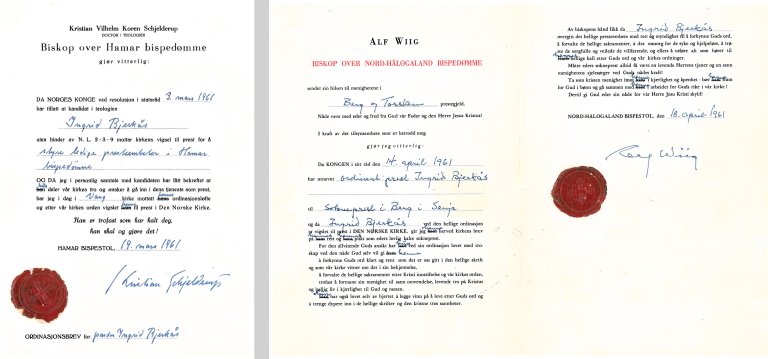 Kristian Vilhelm Koren Schjelderup
DOCTOR I TEOLOGIEN
Biskop over Hamar bispedømme
gjør vitterlig:
DA NORGES KONGE ved resolusjon i statsråd 3. mars 1961
har tillatt at kandidat i teologien
Ingrid Bjerkås
uten hinder av N. L. 2-3-9 mottar kirkens vigsel til prest for å
styre ledige presteembeter i Hamar
bispedømme
OG DA jeg i personlig samtale med kandidaten har fått bekreftet at
hun deler vår kirkes tro og ønsker å gå inn i dens tjeneste som prest,
har jeg i dag i Vang kirke mottatt hennes ordinasjonsløfte
og etter vår kirkes orden vigslet henne til prest i Den Norske Kirke.
Han er trofast som har kalt deg,
han skal og gjøre det!
HAMAR BISPESTOL, 19. mars 1961
Kristian Schjelderup
ORDINASJONSBREV for pastor Ingrid Bjerkås
ALF WIIG
BISKOP OVER NORD-HÅLOGALAND BISPEDØMME
sender sin hilsen til menighetene i
Berg og Torsken prestegjeld.
Nåde være med eder og fred fra Gud vår Fader og den Herre Jesus Kristus!
I kraft av det tilsynsembete som er betrodd meg
gjør jeg vitterlig:
Da KONGEN i sitt råd den 14. april 1961
har utnevnt ordinert prest Ingrid Bjerkås
til Sokneprest i Berg i Senja
og da Ingrid Bjerkås ved den hellige ordinasjon
er vigslet til prest i DEN NORSKE KIRKE, gir jeg henne herved kirkens brev
på hennes rett og hennes plikt som eders lovlig kalte sokneprest.
For den allvitende Guds ansikt har hun ved sin ordinasjon lovet med tro-
skap ved den nåde Gud selv vil gi henne
å forkynne Guds ord klart og rent som det er oss gitt i den hellige skrift
og som vår kirke vitner om det i sin bekjennelse,
å forvalte de hellige sakramenter etter Kristi innstiftelse og vår kirkes orden,
trofast å formane sin menighet til sann omvendelse, levende tro på Kristus
og hellig liv i kjærlighet til Gud og nesten.
Hun har også lovet selv av hjertet å legge vinn på å leve etter Guds ord og
å trenge dypere inn i de hellige skrifter og den kristne tros sannheter.
Av biskopens hånd fikk da Ingrid Bjerkås
overgitt det hellige presteembete med rett og myndighet til å forkynne Guds ord,
å forvalte de hellige sakramenter,
hellige kall etter Guds ord og vår kirkes ordninger.
Måtte eders sokneprest alltid få være en levende Herrens tjener og en sann
menighetens sjelesørger ved Guds nådes kraft!
Ta som kristen menighet imot henne i kjærlighet og kjennhet - bær henne fram
for Gud i bønn og gå sammen med henne i arbeidet for Guds rike i vår kirke!
Dertil gi Gud eder sin nåde for vår Herre Jesu Kristi skyld!
NORD-HÅLOGALAND BISPESTOL, den 18. april 1961
Alf Wiig